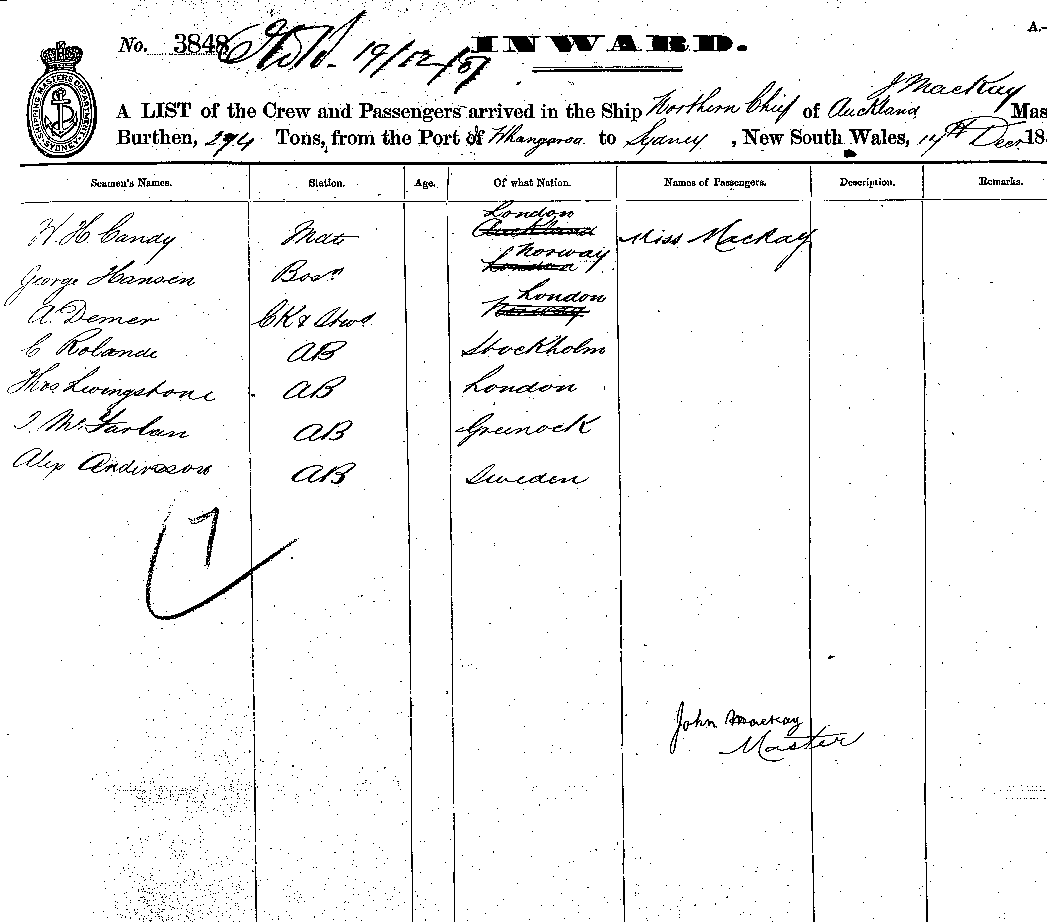 No. 3848 19/12/87 INWARD. A.-
J Mackay
A LIST of the Crew and Passengers arrived in the Ship Northern Chief of Auckland Mas
Burthen, 294 Tons, from the Port of Whangaroa to Sydney, New South Wales, 14th Decr 18
Seamen's Names. Station. Age. Of what Nation. Names of Passengers. Description. Remarks.
London
H H Candy Mate Auckland Miss Mackay
Norway
George Hansen Bosn London
London
A. Demer CK & Stwd Norway
C Rolande AB Stockholm
Livingstone AB London
McFarlan AB Greenock
Alex Andersson AB Sweden
7
John Mackay
Master